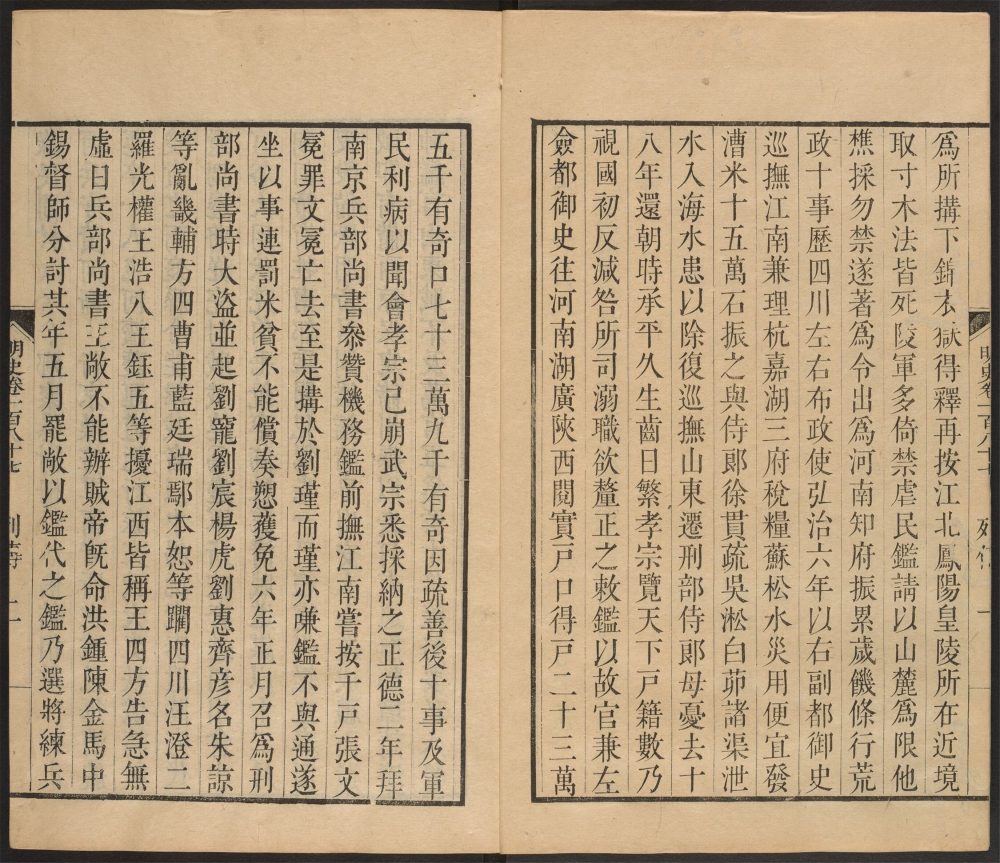 爲所搆下錦衣獄得釋再按江北鳳陽皇陵所在近境
取寸木法皆死陵軍多倚禁虐民鑑請以山麓爲限他
樵採勿禁遂著爲令出爲河南知府振累歲饑條行荒
政十事歷四川左右布政使弘治六年以右副都御史
巡撫江南兼理杭嘉湖三府稅糧蘇松水災用便宜發
漕米十五萬石振之與侍郞徐貫疏吳淞白茆諸渠泄
水入海水患以除復巡撫山東遷刑部侍郞母憂去十
八年還朝時承平久生齒日繁孝宗覽天下戸籍數乃
視國初反減咎所司溺職欲釐正之敕鑑以故官兼左
僉都御史往河南湖廣陝西閱實戸口得戸二十三萬
五千有奇口七十三萬九千有奇因疏善後十事及軍
民利病以聞會孝宗已崩武宗悉採納之正德二年拜
南京兵部尚書叅贊機務鑑前撫江南嘗按千戸張文
冕罪文冕亡去至是搆於劉瑾而瑾亦嗛鑑不與通遂
坐以事連罰米貧不能償奏愬獲免六年正月召爲刑
部尚書時大盜並起劉寵劉宸楊虎劉惠齊彥名朱諒
等亂畿輔方四曹甫藍廷瑞鄢本恕等躪四川汪澄二
羅光權王浩八王鈺五等擾江西皆稱王四方告急無
虛日兵部尚書王敞不能辦賊帝旣命洪鍾陳金馬中
錫督師分討其年五月罷敞以鑑代之鑑乃選將練兵
明史卷一百八十七 列傳 二